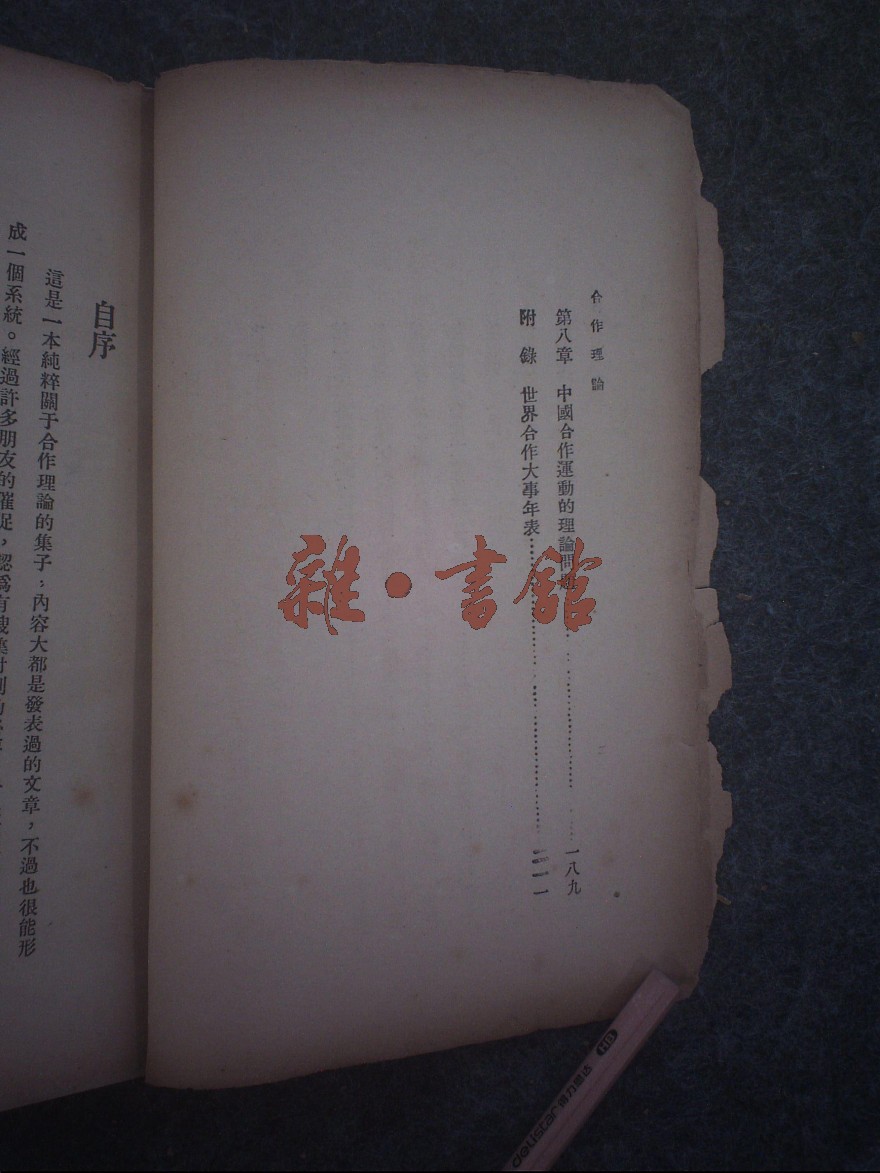 合作理論
第八章 中國合作運動的理論問題……………………一八九
附錄 世界合作大事年表……………………二一一
自序
這是一本純粹關于合作理論的集子，內容大都是發表過的文章，不過也很能形
成一個系統。經過許多朋友的催促，認爲有
雜·書館
deli star 得力思达 HB